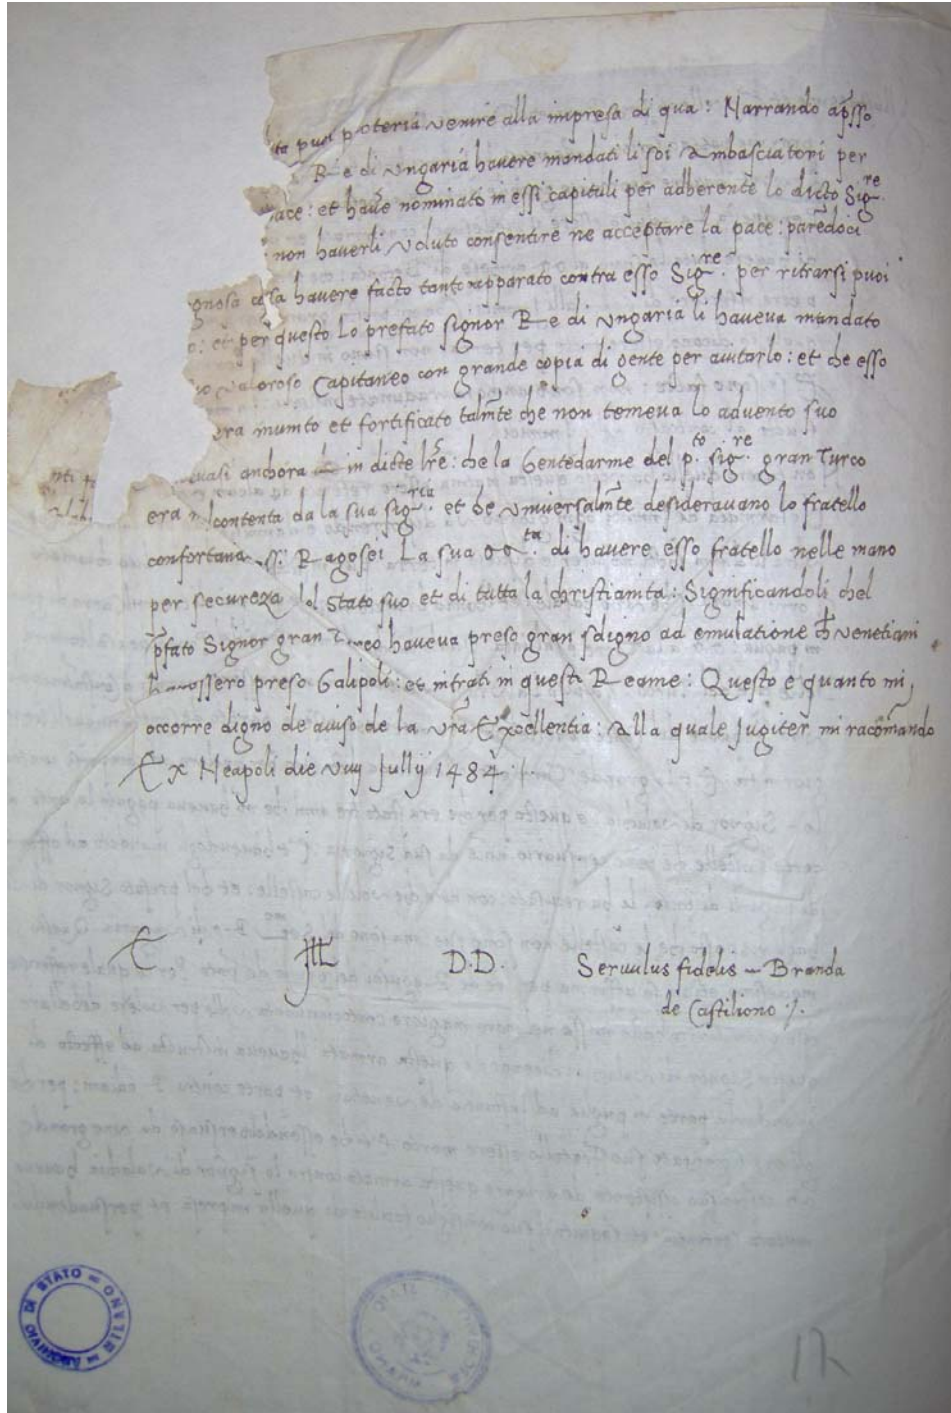 puoi poteria venire alla impresa di qua: Narrando ap̄sso
Re di Ungaria havere mandati li soi Ambasciatori per
pace: et have nominato in essi capituli per adherente lo dicto Sig.re
non haverli voluto consentire ne acceptare la pace: parēdoci
cosa havere facto tanto apparato contra esso Sig.re per ritrarsi puoi
et per questo Lo prefato signor Re di Ungaria li haveva mandato
valoroso Capitaneo con grande copia di gente per aiutarlo: et che esso
era munito et fortificato talmte che non temeva lo advento suo
anchora in dicte lre: che la Gentedarme del p.to sig.re gran Turco
era contenta da la sua sig.ria et che universalmte desideravano lo fratello
Ragosei La sua M.ta di havere esso fratello nelle mano
per secureza Stato suo et di tutta la christianita: Significandoli chel
p̄fato Signor gran haveva preso gran sdigno ad emulatione venetiani
havessero preso Galipoli: et intrati in questi Reame: Questo e quanto mi
occorre digno de aviso de la vr̄a Excellentia: Alla quale Jugiter mi racom̄ando
Ex Neapoli die Jullij 1484
E Ill D.D. Servulus fidelis Branda
de Castiliono
ARCHIVIO DI STATO = MILANO =
17